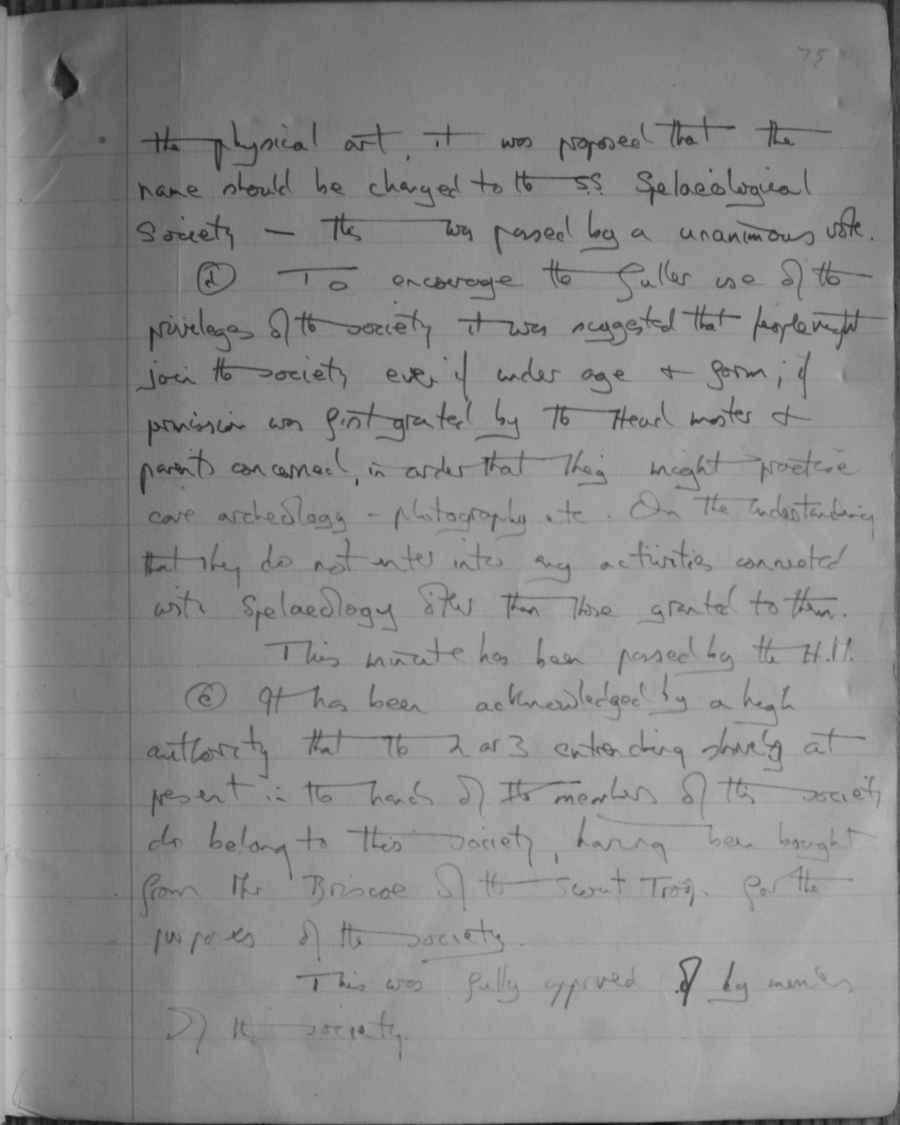 75
the physical art, it was proposed that the
name should be changed to the SS Spelaeological
Society — This was passed by a unanimous vote.
(d) To encourage the fuller use of the
privileges of the society it was suggested that people might
join the society even if under age + form; if
permission was first granted by the Head master +
parents concerned, in order that they might practice
cave archeology - photography etc. On the understanding
that they do not enter into any activities connected
with Spelaeology other than those granted to them.
This minute has been passed by the H.M.
(e) It has been acknowledged by a high
authority that the 2 or 3 entrenching shovels at
present in the hands of the members of this society
do belong to this society, having been bought
from Mr Briscoe of the Scout Troop. for the
purposes of the society.
This was fully approved by members
of the society.